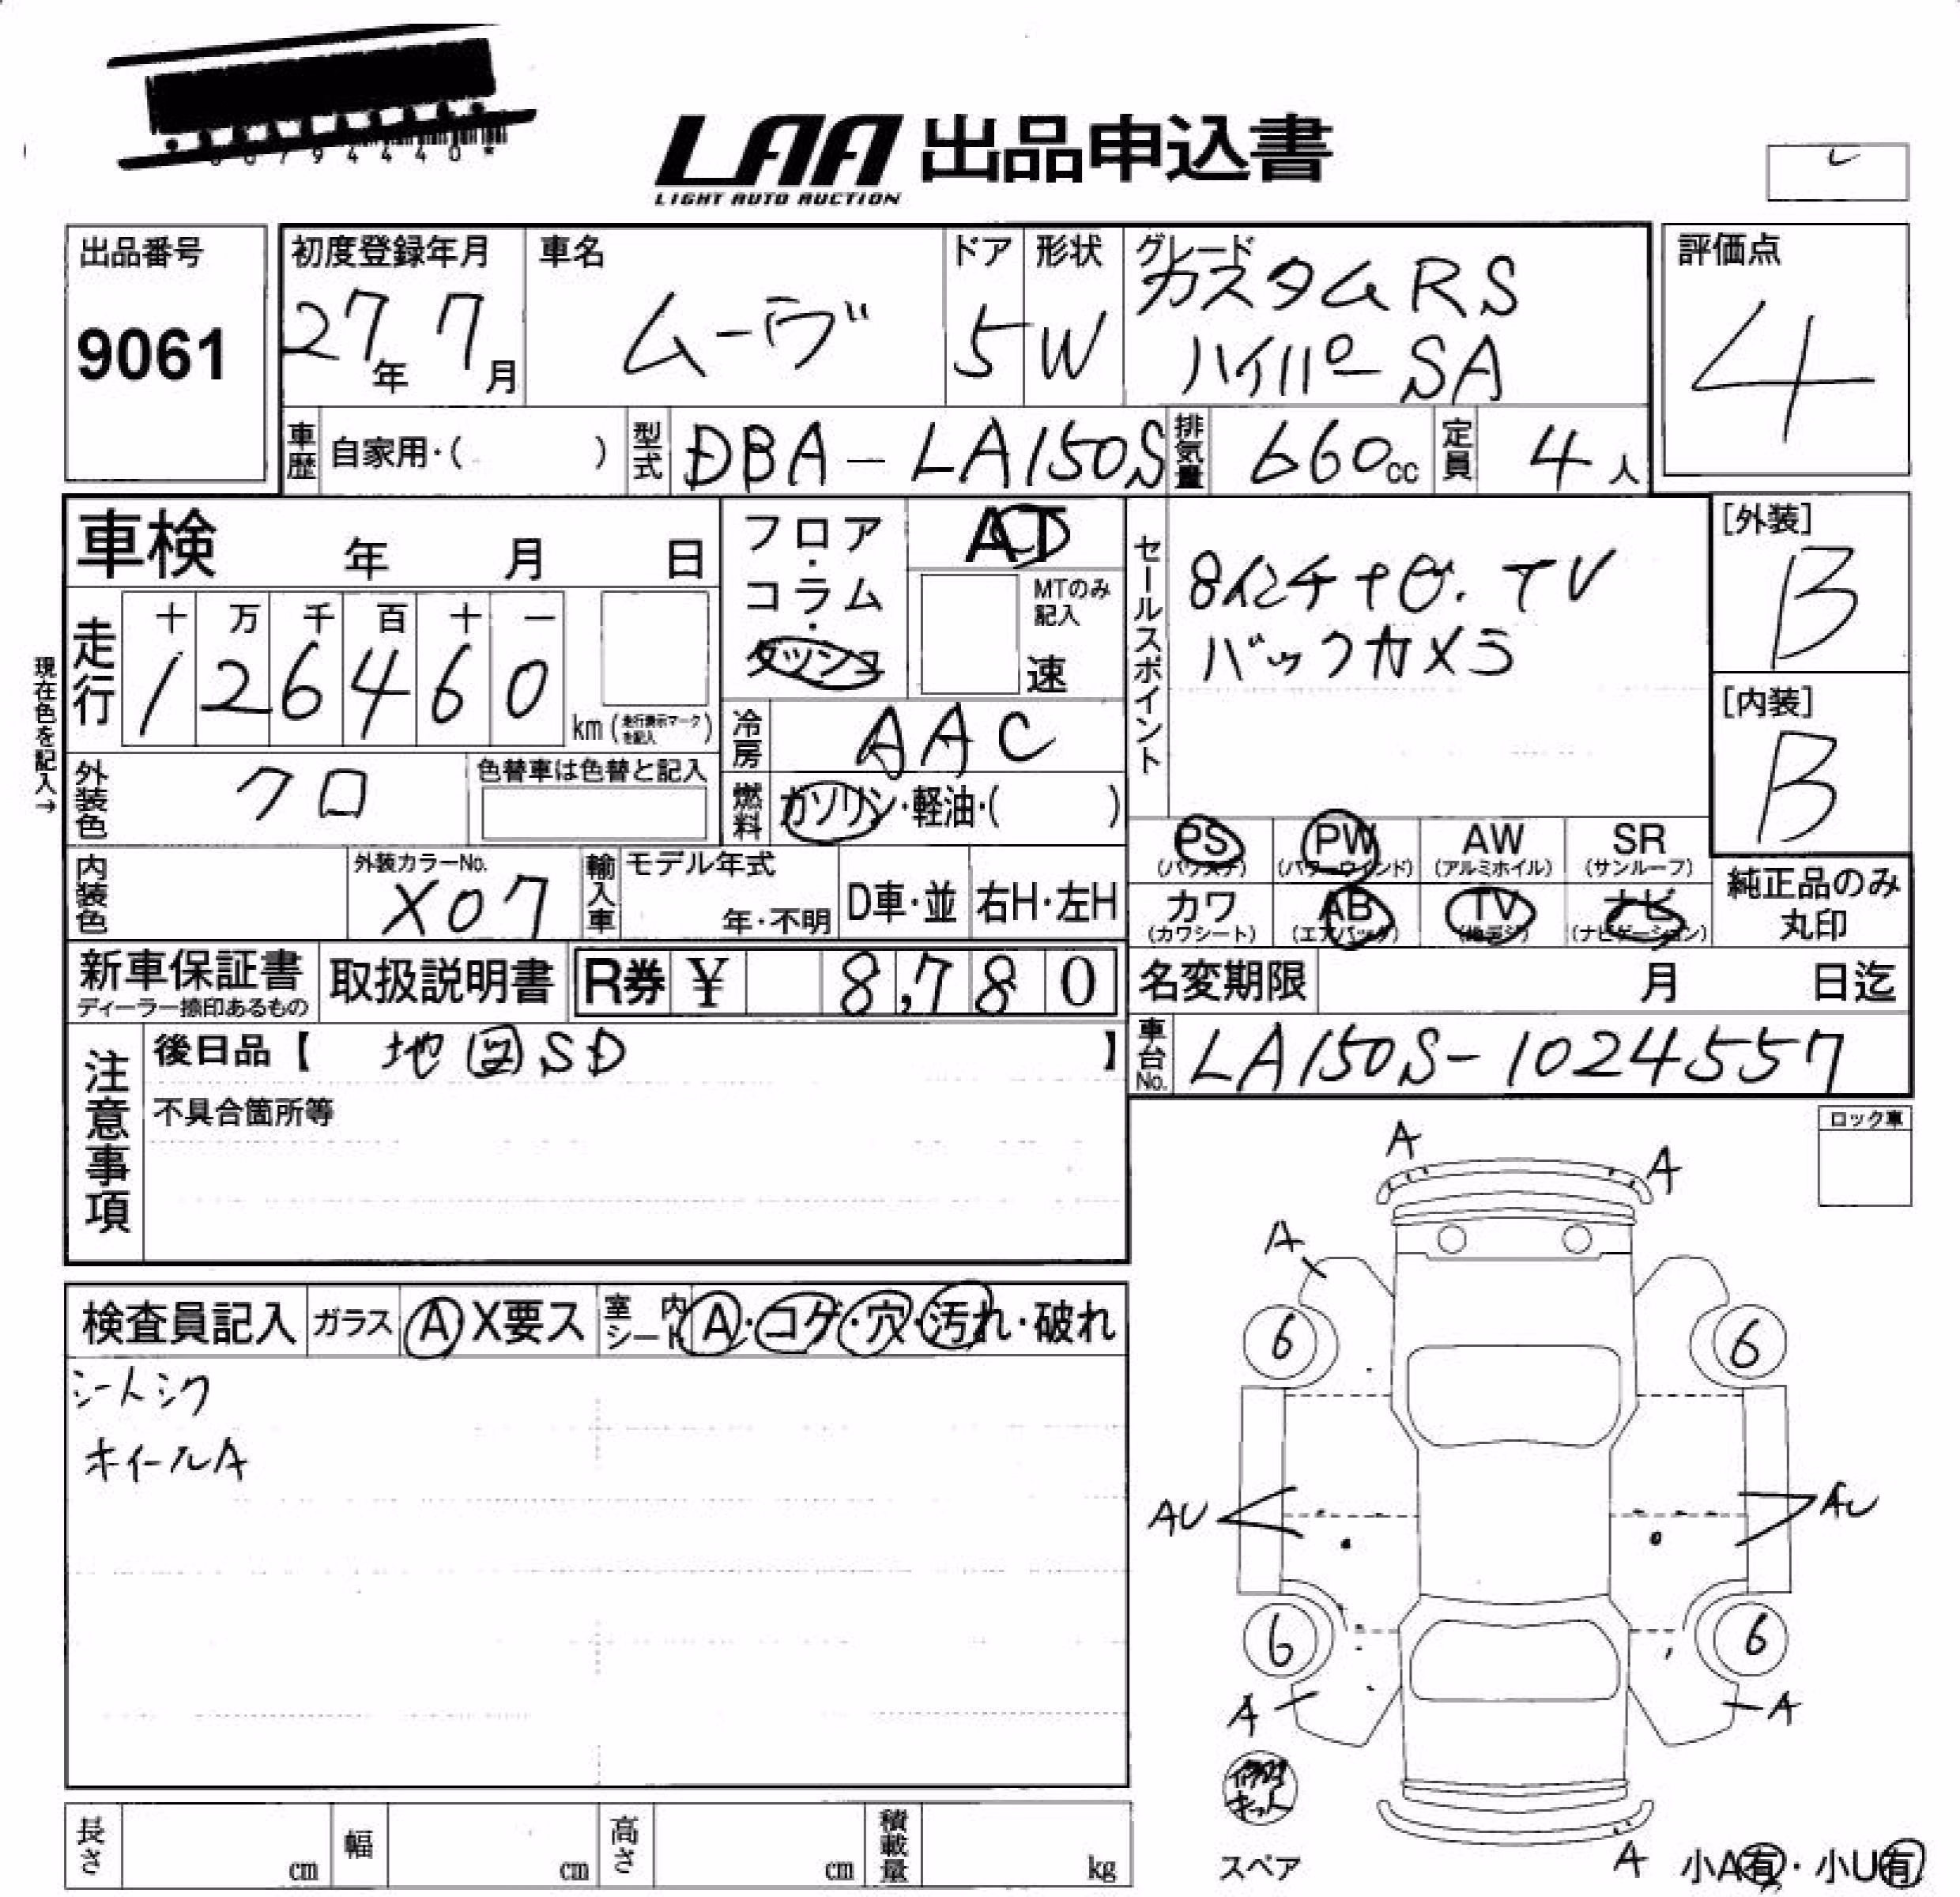 0794440*
LAA 出品申込書
LIGHT AUTO AUCTION
出品番号
9061
初度登録年月
27年 7月
車名
ムーヴ
ドア
5
形状
W
グレード
カスタムRS
ハイパーSA
評価点
4
車歴 自家用・( )
型式 DBA-LA150S
排気量 660cc
定員 4人
車検 年 月 日
フロア・コラム・ダッシュ
AT
MTのみ記入
速
セールスポイント
8インチナビ.TV
バックカメラ
[外装]
B
[内装]
B
現在色を記入→
走行
十 万 千 百 十 一
1 2 6 4 6 0
km (走行表示マークを記入)
冷房 AAC
外装色 クロ
色替車は色替と記入
燃料 ガソリン・軽油・( )
PS (パワステ) PW (パワーウインド) AW (アルミホイル) SR (サンルーフ)
カワ (カワシート) AB (エアバック) TV (地デジ) ナビ (ナビゲーション)
純正品のみ丸印
内装色
外装カラーNo.
X07
輸入車 モデル年式 年・不明 D車・並 右H・左H
新車保証書
ディーラー捺印あるもの
取扱説明書
R券 ¥ 8,780
名変期限 月 日迄
注意事項
後日品【 地図SD 】
不具合箇所等
車台No. LA150S-1024557
ロック車
検査員記入 ガラス A X要ス 室内シート A・コゲ・穴・汚れ・破れ
シートシワ
ホイールA
A
A
A
6
6
AU
AU
6
6
A
A
スペア
A
小A有・小U有
長さ cm 幅 cm 高さ cm 積載量 kg